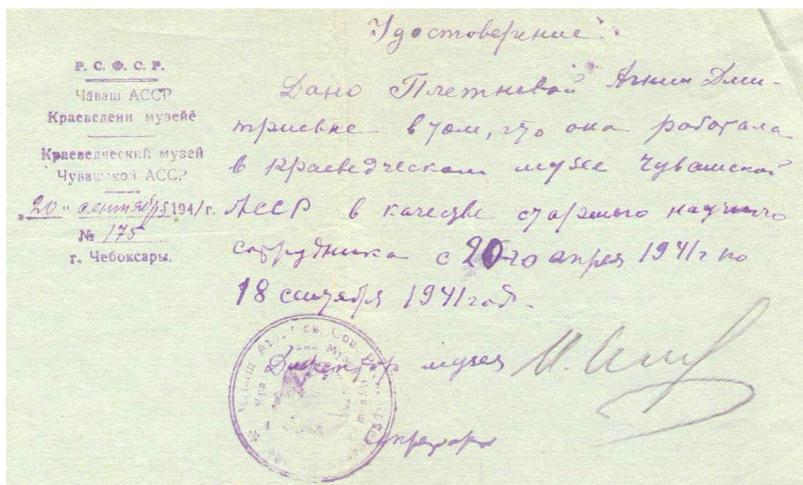 Удостоверение.
Р. С. Ф. С. Р.
Чӑваш АССР
Краеведени музейӗ
Краеведческий музей
Чувашской АССР
„20" сентября 1941 г.
№ 175
г. Чебоксары.
Дано Плетневой Агнии Дми-
триевне в том, что она работала
в краеведческом музее Чувашской
АССР в качестве старшего научного
сотрудника с 20го апреля 1941 г по
18 сентября 1941 год.
Директор музея
Секретарь